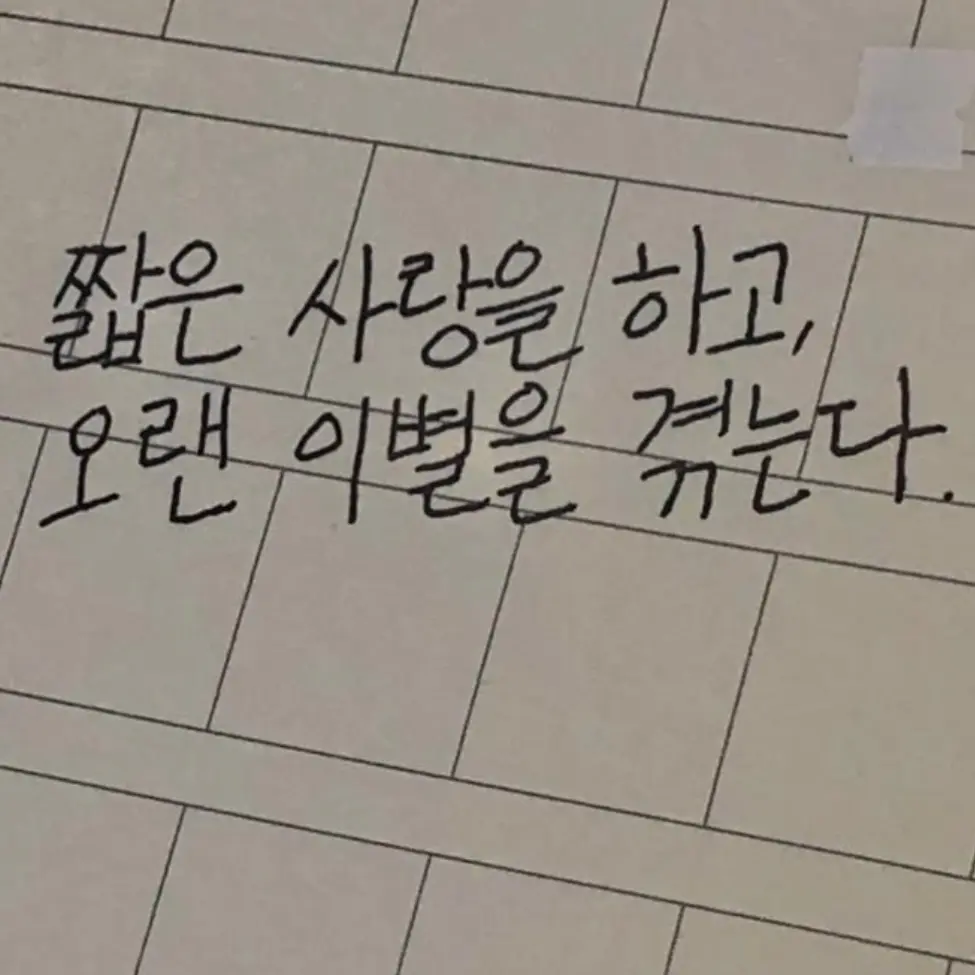 짧은 사랑을 하고,
오랜 이별을 겪는다.